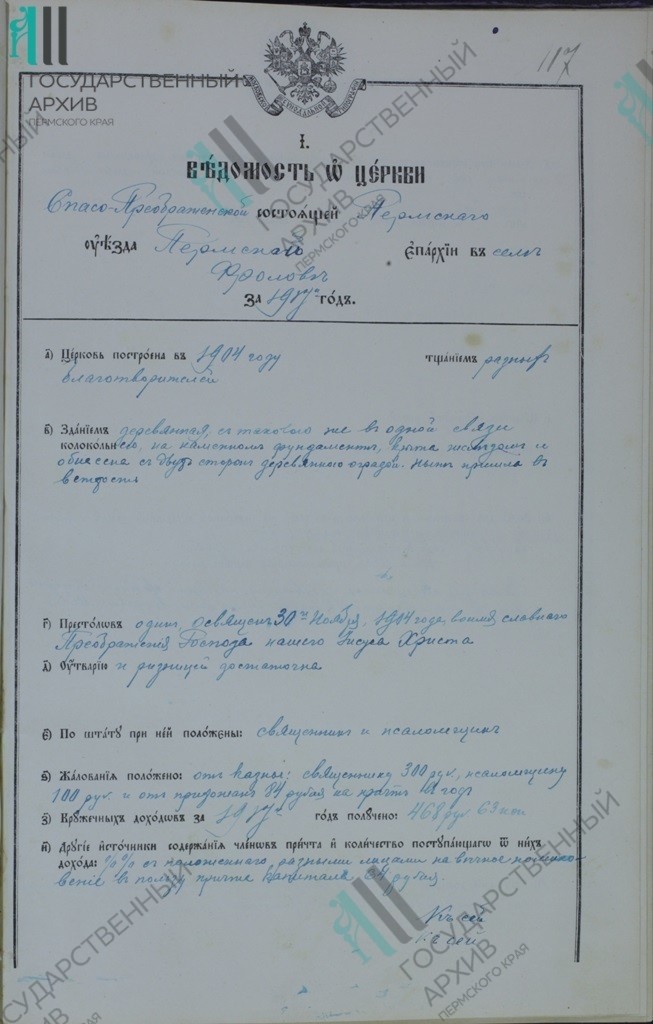 117
ГОСУДАРСТВЕННЫЙ
АРХИВ
ПЕРМСКОГО КРАЯ
І.
ВѢДОМОСТЬ Ѡ ЦЕРКВИ
Спасо-Преображенской состоѧщей Пермскаго
оуѣзда Пермской Епархіи въ селѣ
Фроловѣ
за 1917й годъ.
а) Церковь построена въ 1904 году тщаніемъ разныхъ
благотворителей
в) Зданіемъ деревянная, съ таковою же въ одной связи
колокольнею, на каменномъ фундаментѣ, крыта желѣзомъ и
обнесена съ двухъ сторонъ деревянною оградой. Нынѣ пришла въ
ветхость
г) Престолѡвъ одинъ, освященъ 30го Ноября, 1904 года, во имя славнаго
Преображенія Господа нашего Іисуса Христа
д) Оутварію и ризницей достаточна
є) По штату при ней положены: священникъ и псаломщикъ
ѕ) Жалованіѧ положено: отъ казны: священнику 300 руб., псаломщику
100 руб. и отъ прихожанъ 84 рубля на причтъ въ годъ
з) Кружечныхъ доходѡвъ за 1917й годъ получено: 468 руб 63 коп
и) Другіе источники содержаніѧ членѡвъ причта и количество поступающагѡ ѿ нихъ
дохода: %% съ положеннаго разными лицами на вѣчное помино-
веніе въ пользу причта капитала 24 рубля.
Къ сей
Къ сей